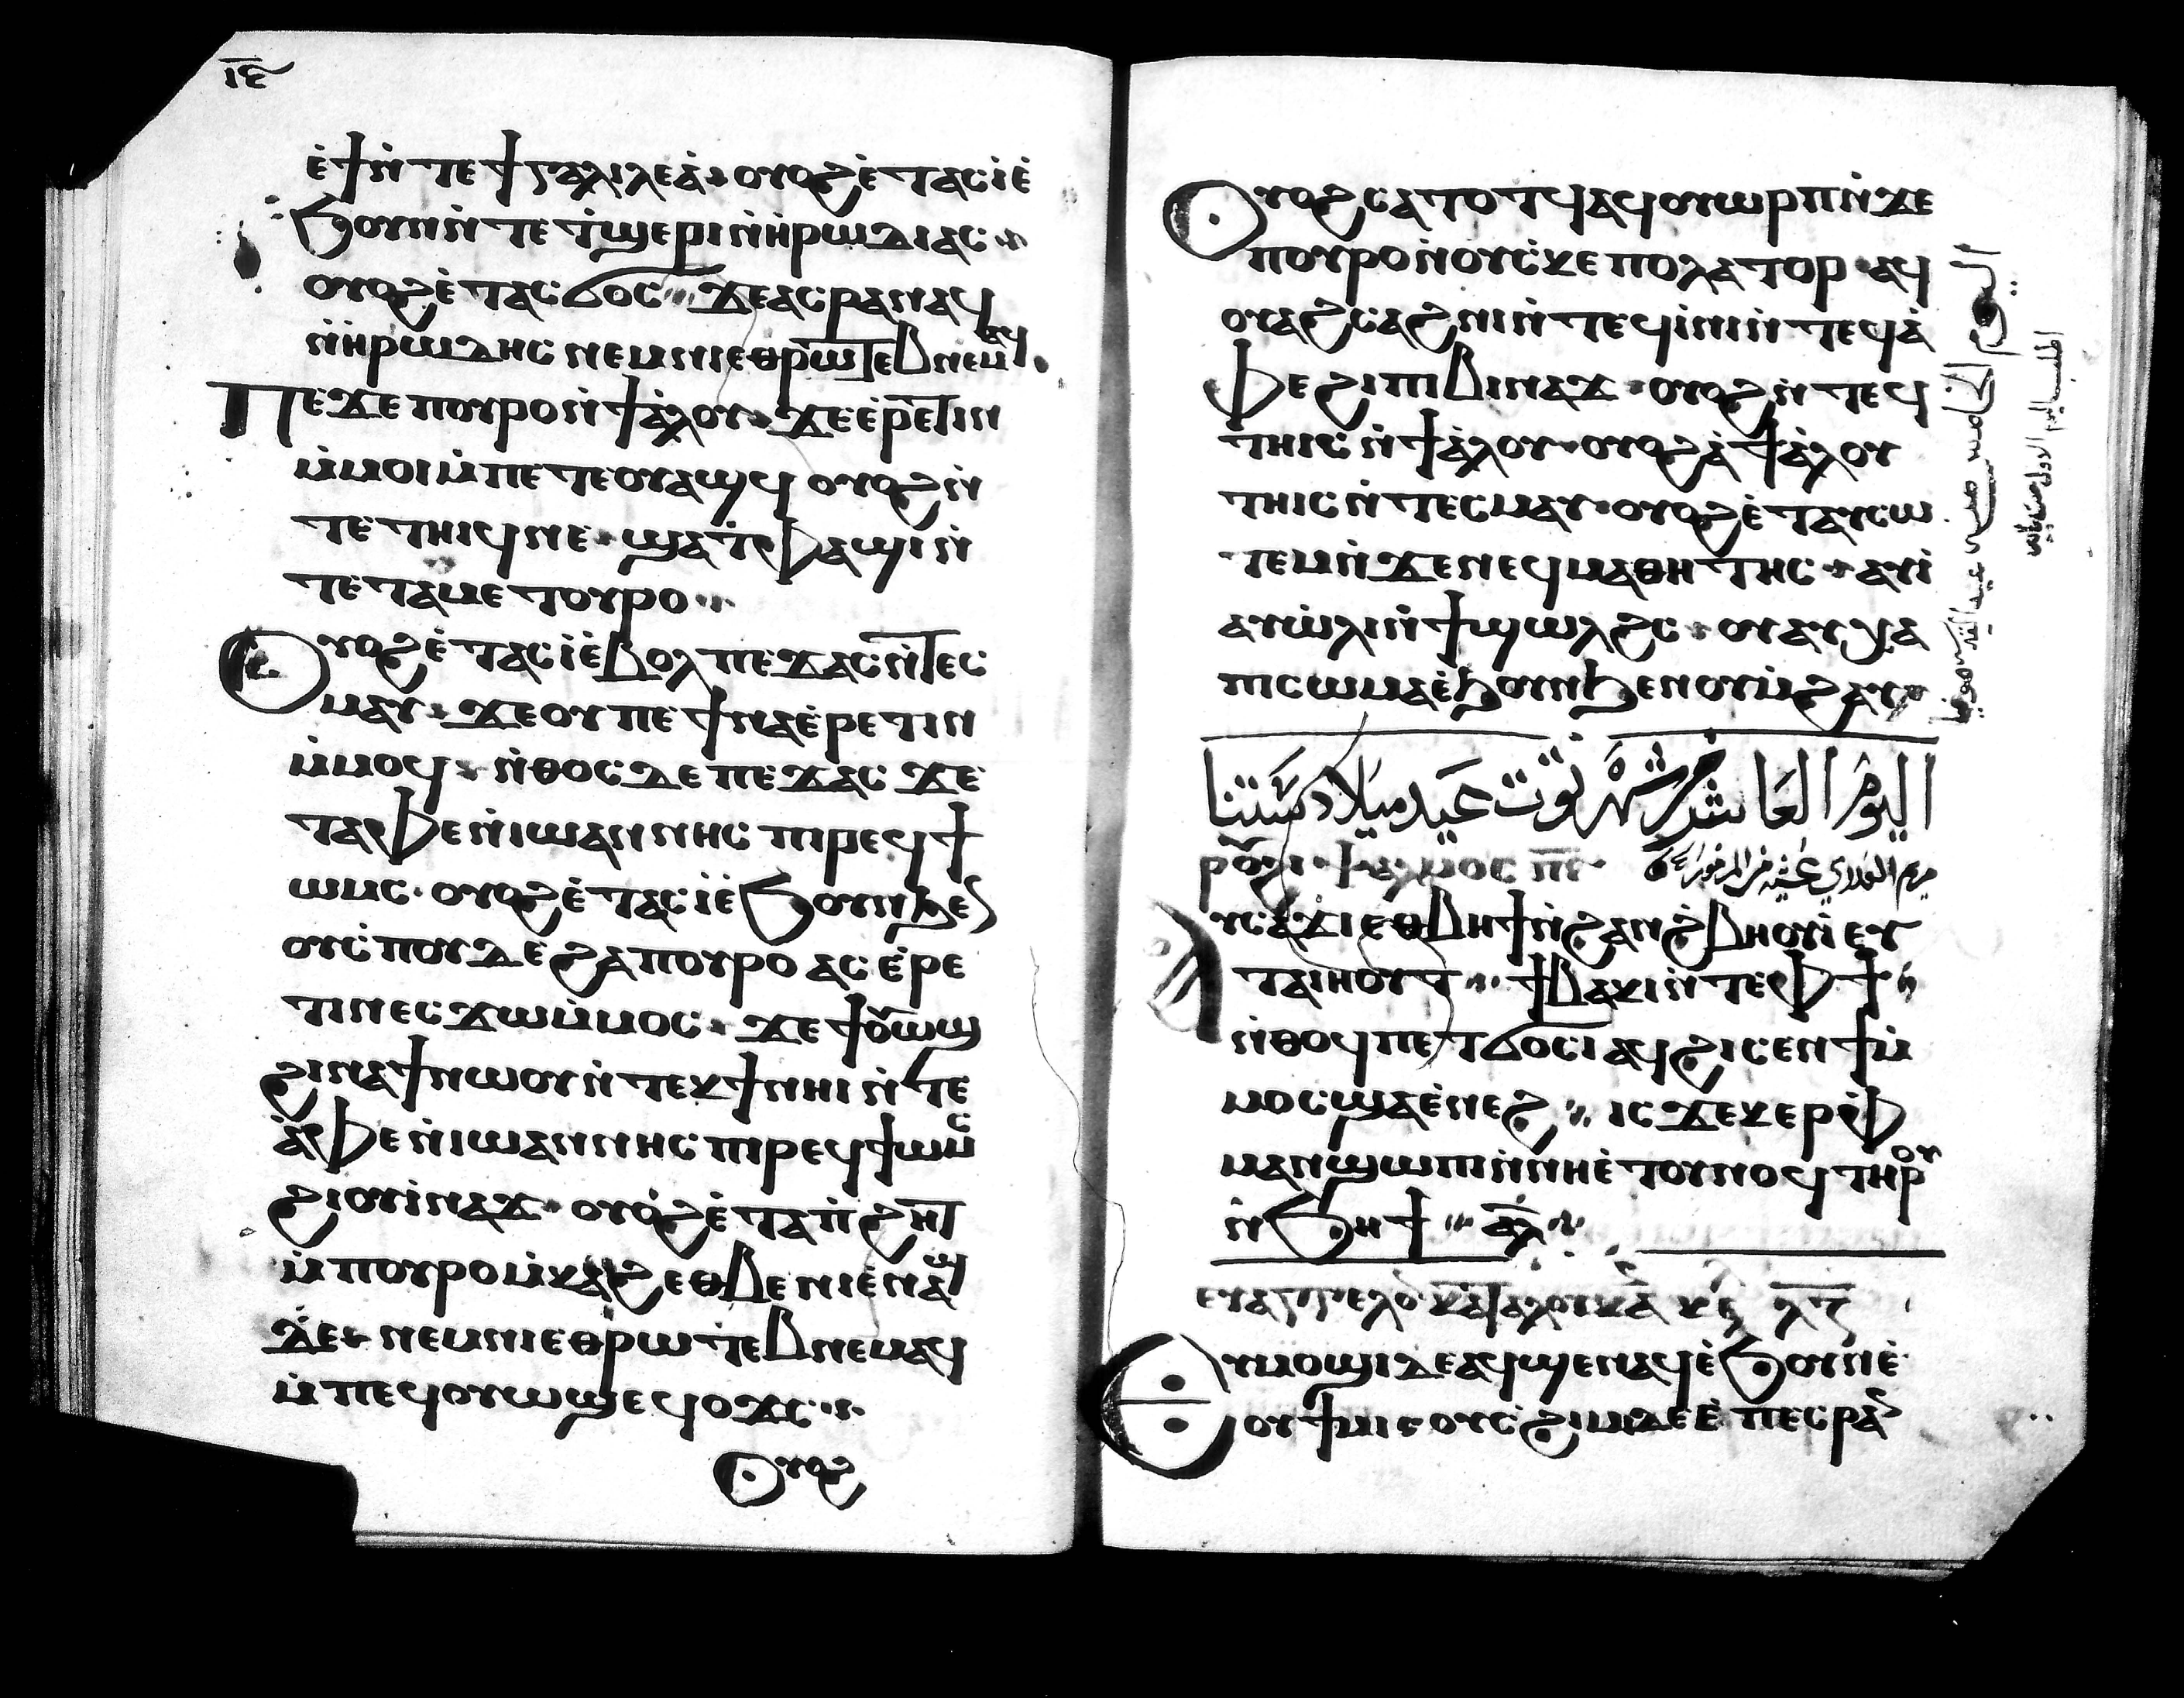 ⲓ̅ⲋ̅
ⲉ̀ϯⲛ̀ⲧⲉϯⲅⲁⲗⲓⲗⲉⲁ̀ ⲟⲩⲟϩ ⲉ̀ⲧⲁⲥⲓ̀ ⲉ̀
ϧⲟⲩⲛ ⲛ̀ⲧⲉ ⲧ̀ϣⲉⲣⲓ ⲛ̀ⲏ̀ⲣⲱⲇⲓⲁⲥ
ⲟⲩⲟϩ ⲉ̀ⲧⲁⲥϭⲟⲥ ϫⲉ ⲁⲥⲣⲁⲛⲁϥ
ⲛ̀ⲏ̀ⲣⲱⲇⲏⲥ ⲛⲉⲙ ⲛⲓⲉⲑⲣⲱⲧⲉⲃ ⲛⲉⲙⲁϥ
Ⲡⲉϫⲉ ⲡⲟⲩⲣⲟ ⲛ̀ϯⲁ̀ⲗⲟⲩ ϫⲉ ⲉ̀ⲣⲉⲧⲓⲛ
ⲙ̀ⲙⲟⲓ ⲙ̀ⲡⲉⲧⲉⲟⲩⲁϣϥ ⲟⲩⲟϩ ⲛ̀
ⲧⲉⲧⲏⲓϥ ⲛⲉ ϣⲁ ⲧ̀ⲫⲁϣⲓ ⲛ̀
ⲧⲉ ⲧⲁⲙⲉⲧⲟⲩⲣⲟ
Ⲟⲩⲟϩ ⲉ̀ⲧⲁⲥⲓ̀ ⲉ̀ⲃⲟⲗ ⲡⲉϫⲁⲥ ⲛ̀ⲧⲉⲥ
ⲙⲁⲩ ϫⲉ ⲟⲩ ⲡⲉ ϯⲛⲁⲉ̀ⲣⲉⲧⲓⲛ
ⲙ̀ⲙⲟϥ ⲛ̀ⲑⲟⲥ ⲇⲉ ⲡⲉϫⲁⲥ ϫⲉ
ⲧⲁⲫⲉ ⲛ̀ⲓⲱⲁⲛⲛⲏⲥ ⲡⲓⲣⲉϥϯ
ⲱⲙⲥ ⲟⲩⲟϩ ⲉ̀ⲧⲁⲥⲓ̀ ⲉ̀ϧⲟⲩⲛ ϧⲉⲛ
ⲟⲩⲥ̀ⲡⲟⲩⲇⲉ ϩⲁ ⲡⲟⲩⲣⲟ ⲁⲥⲉ̀ⲣⲉ
ⲧⲓⲛ ⲉⲥϫⲱ ⲙ̀ⲙⲟⲥ ϫⲉ ϯⲟⲩⲱϣ
ϩⲓⲛⲁ ϯⲛⲱⲟⲩ ⲛ̀ⲧⲉⲕϯ ⲛⲏⲓ ⲛ̀ⲧⲉ
ⲁ̀ⲫⲉ ⲛ̀ⲓⲱⲁⲛⲛⲏⲥ ⲡⲓⲣⲉϥϯⲱⲙⲥ
ϩⲓ ⲟⲩⲓ̀ⲛⲁϫ ⲟⲩⲟϩ ⲉ̀ⲧⲁ ⲡ̀ϩⲏⲧ
ⲙ̀ⲡⲟⲩⲣⲟ ⲙ̀ⲕⲁϩ ⲉⲑⲃⲉ ⲛⲓⲉ̀ⲛⲁϣ
ϫⲉ ⲛⲉⲙ ⲛⲓⲉⲑⲣⲱⲧⲉⲃ ⲛⲉⲙⲁϥ
ⲙ̀ⲡⲉϥⲟⲩⲱϣ ⲉϥⲟϫⲥ
Ⲟⲩⲟϩ
Ⲟⲩⲟϩ ⲥⲁⲧⲟⲧϥ ⲁϥⲟⲩⲱⲣⲡ ⲛ̀ϫⲉ
ⲡⲟⲩⲣⲟ ⲛ̀ⲟⲩⲥ̀ⲕⲉⲡⲟⲗⲁⲧⲟⲣ ⲁϥ
ⲟⲩⲁϩⲥⲁϩⲛⲓ ⲛ̀ⲧⲉϥⲓ̀ⲛⲓ ⲛ̀ⲧⲉϥⲁ̀
ⲫⲉ ϩⲓ ⲡⲓⲃⲓⲛⲁϫ ⲟⲩⲟϩ ⲛ̀ⲧⲉϥ
ⲧⲏⲓⲥ ⲛ̀ϯⲁ̀ⲗⲟⲩ ⲟⲩⲟϩ ⲁ̀ ϯⲁ̀ⲗⲟⲩ
ⲧⲏⲓⲥ ⲛ̀ⲧⲉⲥⲙⲁⲩ ⲟⲩⲟϩ ⲉ̀ⲧⲁⲩⲥⲱ
ⲧⲉⲙ ⲛ̀ϫⲉ ⲛⲉϥⲙⲁⲑⲏⲧⲏⲥ ⲁⲩⲓ̀
ⲁⲩⲱ̀ⲗⲓ ⲛ̀ϯϣⲱⲗϩⲥ ⲟⲩⲁⲩⲭⲁ
ⲡⲓⲥⲱⲙⲁ ⲉ̀ϧⲟⲩⲛ ϧⲉⲛ ⲟⲩⲙ̀ϩⲁⲩ
اليوم العاشر من شهر توت عيد ميلاد ستنا
مريم العذري عشية من المزمور
ⲣⲟⲩϩⲓ ⲯⲁⲗⲙⲟⲥ ⲡ̅ⲋ̅
Ⲁⲩⲥⲁϫⲓ ⲉⲑⲃⲏϯ ⲛ̀ϩⲁⲛϩ̀ⲃⲏⲟⲩⲓ̀ ⲉⲩ
ⲧⲁⲓⲏⲟⲩⲧ ϯⲃⲁⲕⲓ ⲛ̀ⲧⲉ ⲫϯ
ⲛ̀ⲑⲟϥ ⲡⲉⲧϭⲟⲥⲓ ⲁϥϩⲓⲥⲉⲛϯ ⲙ̀
ⲙⲟⲥ ϣⲁ ⲉ̀ⲛⲉϩ ⲓⲥϫⲉⲕ ⲉⲣⲉ̀ ⲫ
ⲙⲁⲛϣⲱⲡⲓ ⲛ̀ⲛⲏⲉ̀ⲧⲟⲩⲛⲟϥ ⲧⲏⲣⲟⲩ
ⲛ̀ϧⲏϯ ⲁⲗ
ⲉⲩⲁⲅⲅⲉⲗⲟ ⲕⲁⲧⲁ ⲗⲟⲩⲕⲁ ⲕⲉ ⲗ̅ⲅ̅
Ⲉⲩⲙⲟϣⲓ ⲇⲉ ⲁϥϣⲉⲛⲁϥ ⲉ̀ϧⲟⲩⲛ ⲉ̀
ⲟⲩϯⲙⲓ ⲟⲩⲥ̀ϩⲓⲙⲓ ⲇⲉ ⲉ̀ⲡⲉⲥⲣⲁⲛ